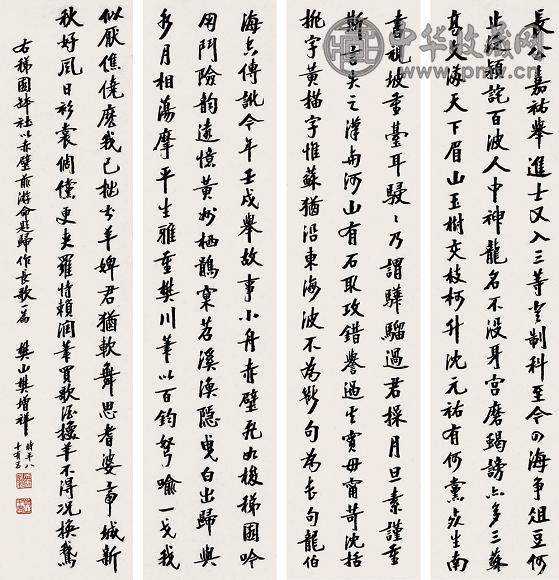 長公嘉祐舉進士又入三等登制科至今四海爭俎豆何
止汝潁詫百波人中神龍名不沒身宮磨蝎謗亦多三蘇
高文滿天下眉山玉樹交枝柯升沈元祐有何黨後生南
書視坡重臺耳駸駸乃謂驊騮過君操月旦素謹重
斯言失之漢南河山有石取攻錯譽過其實毋甯苛沈括
字黃描字惟蘇猶沿東海波不為斷句為長句龍伯
海上傳訛今年壬戌舉故事小舟赤壁飛如梭稊園吟
用鬥險韵遠憶黃州栖鶻窠苕溪漁隱曳白出歸與
水月相蕩摩平生雅重樊川筆以百鈞弩喻一戈我
似厭僬僥麼我已拙於羊婢君猶軟舞思耆婆帝城新
秋好風日衫更羅恃賴潤筆買歌酒羊不得況換鵝
右稊園詩社以赤壁前游命題歸作長歌一篇 樊山樊增祥
時年八
十有五
中华收藏网